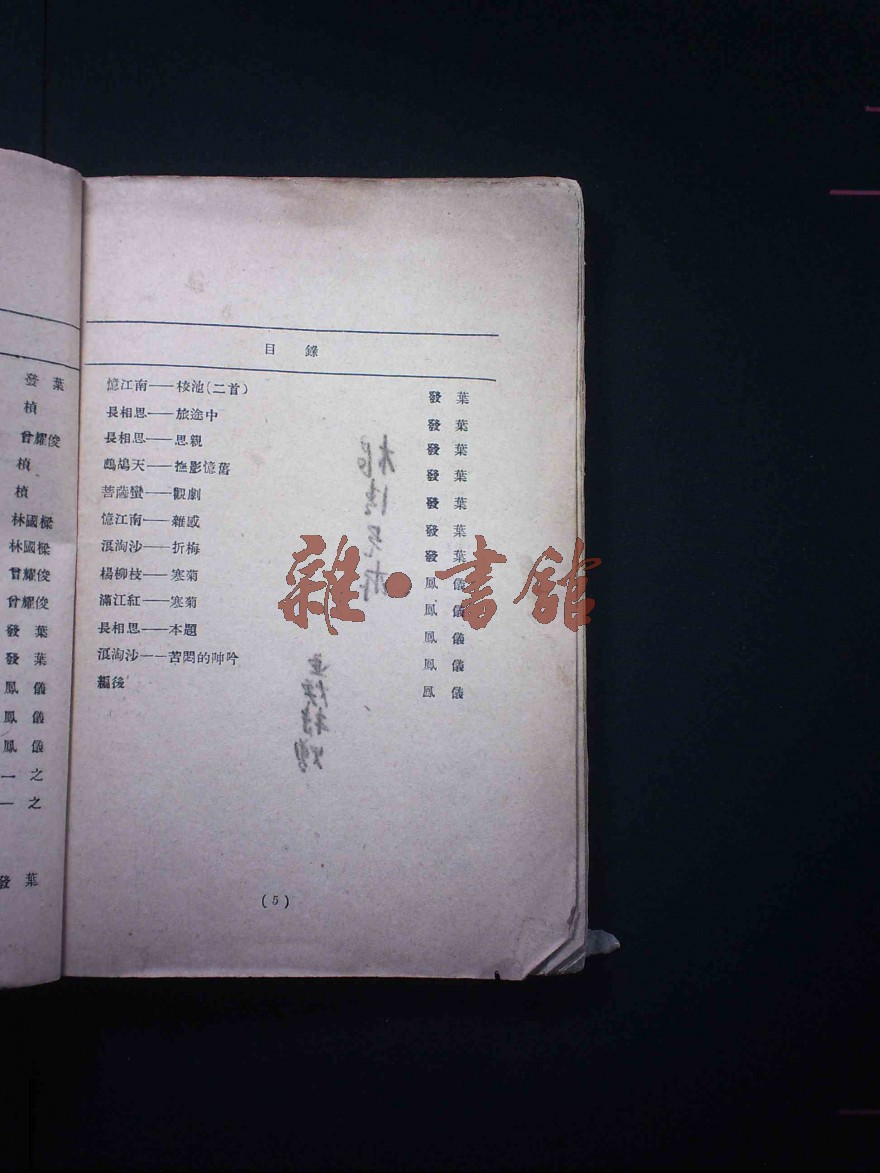 發葉
楨
曾耀俊
楨
楨
林國樑
林國樑
曾耀俊
曾耀俊
發葉
發葉
鳳儀
鳳儀
鳳儀
一之
一之
發葉
目錄
憶江南——校池(二首) 發葉
長相思——旅途中 發葉
長相思——思親 發葉
鷓鴣天——撫影憶舊 發葉
菩薩蠻——觀劇 發葉
憶江南——雜感 發葉
浪淘沙——折梅 發葉
楊柳枝——寒菊 鳳儀
滿江紅——寒菊 鳳儀
長相思——本題 鳳儀
浪淘沙——苦悶的呻吟 鳳儀
編後 鳳儀
(5)
雜·書館